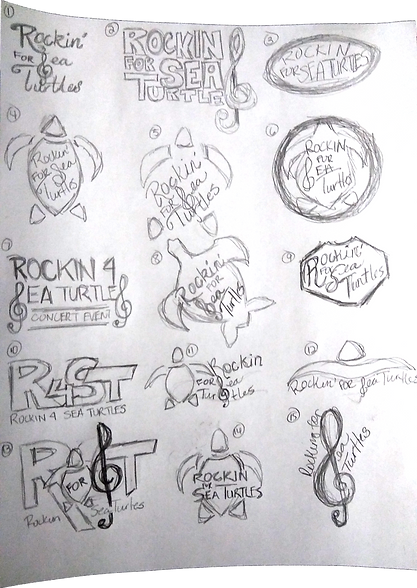 1
Rockin'
FOR Sea
Turtles
2
ROCKIN
FOR SEA
TURTLE
3
ROCKIN
FOR SEA TURTLES
4
Rockin'
For Sea
Turtles
5
Rockin'
FOR Sea
Turtles
6
ROCKIN
FOR
SEA
Turtles
7
ROCKIN 4
SEA TURTLES
CONCERT EVENT
8
Rockin'
for Sea
Turtles
9
Rockin'
For Sea
Turtles
10
R4ST
ROCKIN 4 SEA TURTLES
11
Rockin
FOR Sea
Turtles
12
Rockin' for Sea Turtles
13
R ST
FOR
Rockin Sea Turtles
14
ROCKIN
for
SEA TURTLES
15
Rocking for
Sea Turtles